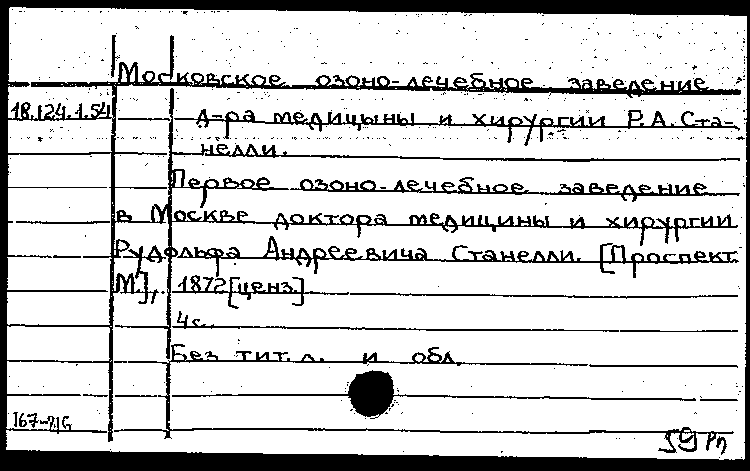 Московское озоно-лечебное заведение
18.124.1.54
д-ра медицыны и хирургии Р.А.Ста-
нелли.
Первое озоно-лечебное заведение
в Москве доктора медицины и хирургии
Рудольфа Андреевича Станелли. [Проспект.
М.], 1872[ценз].
4с.
Без тит. л. и обл.
59 Рп